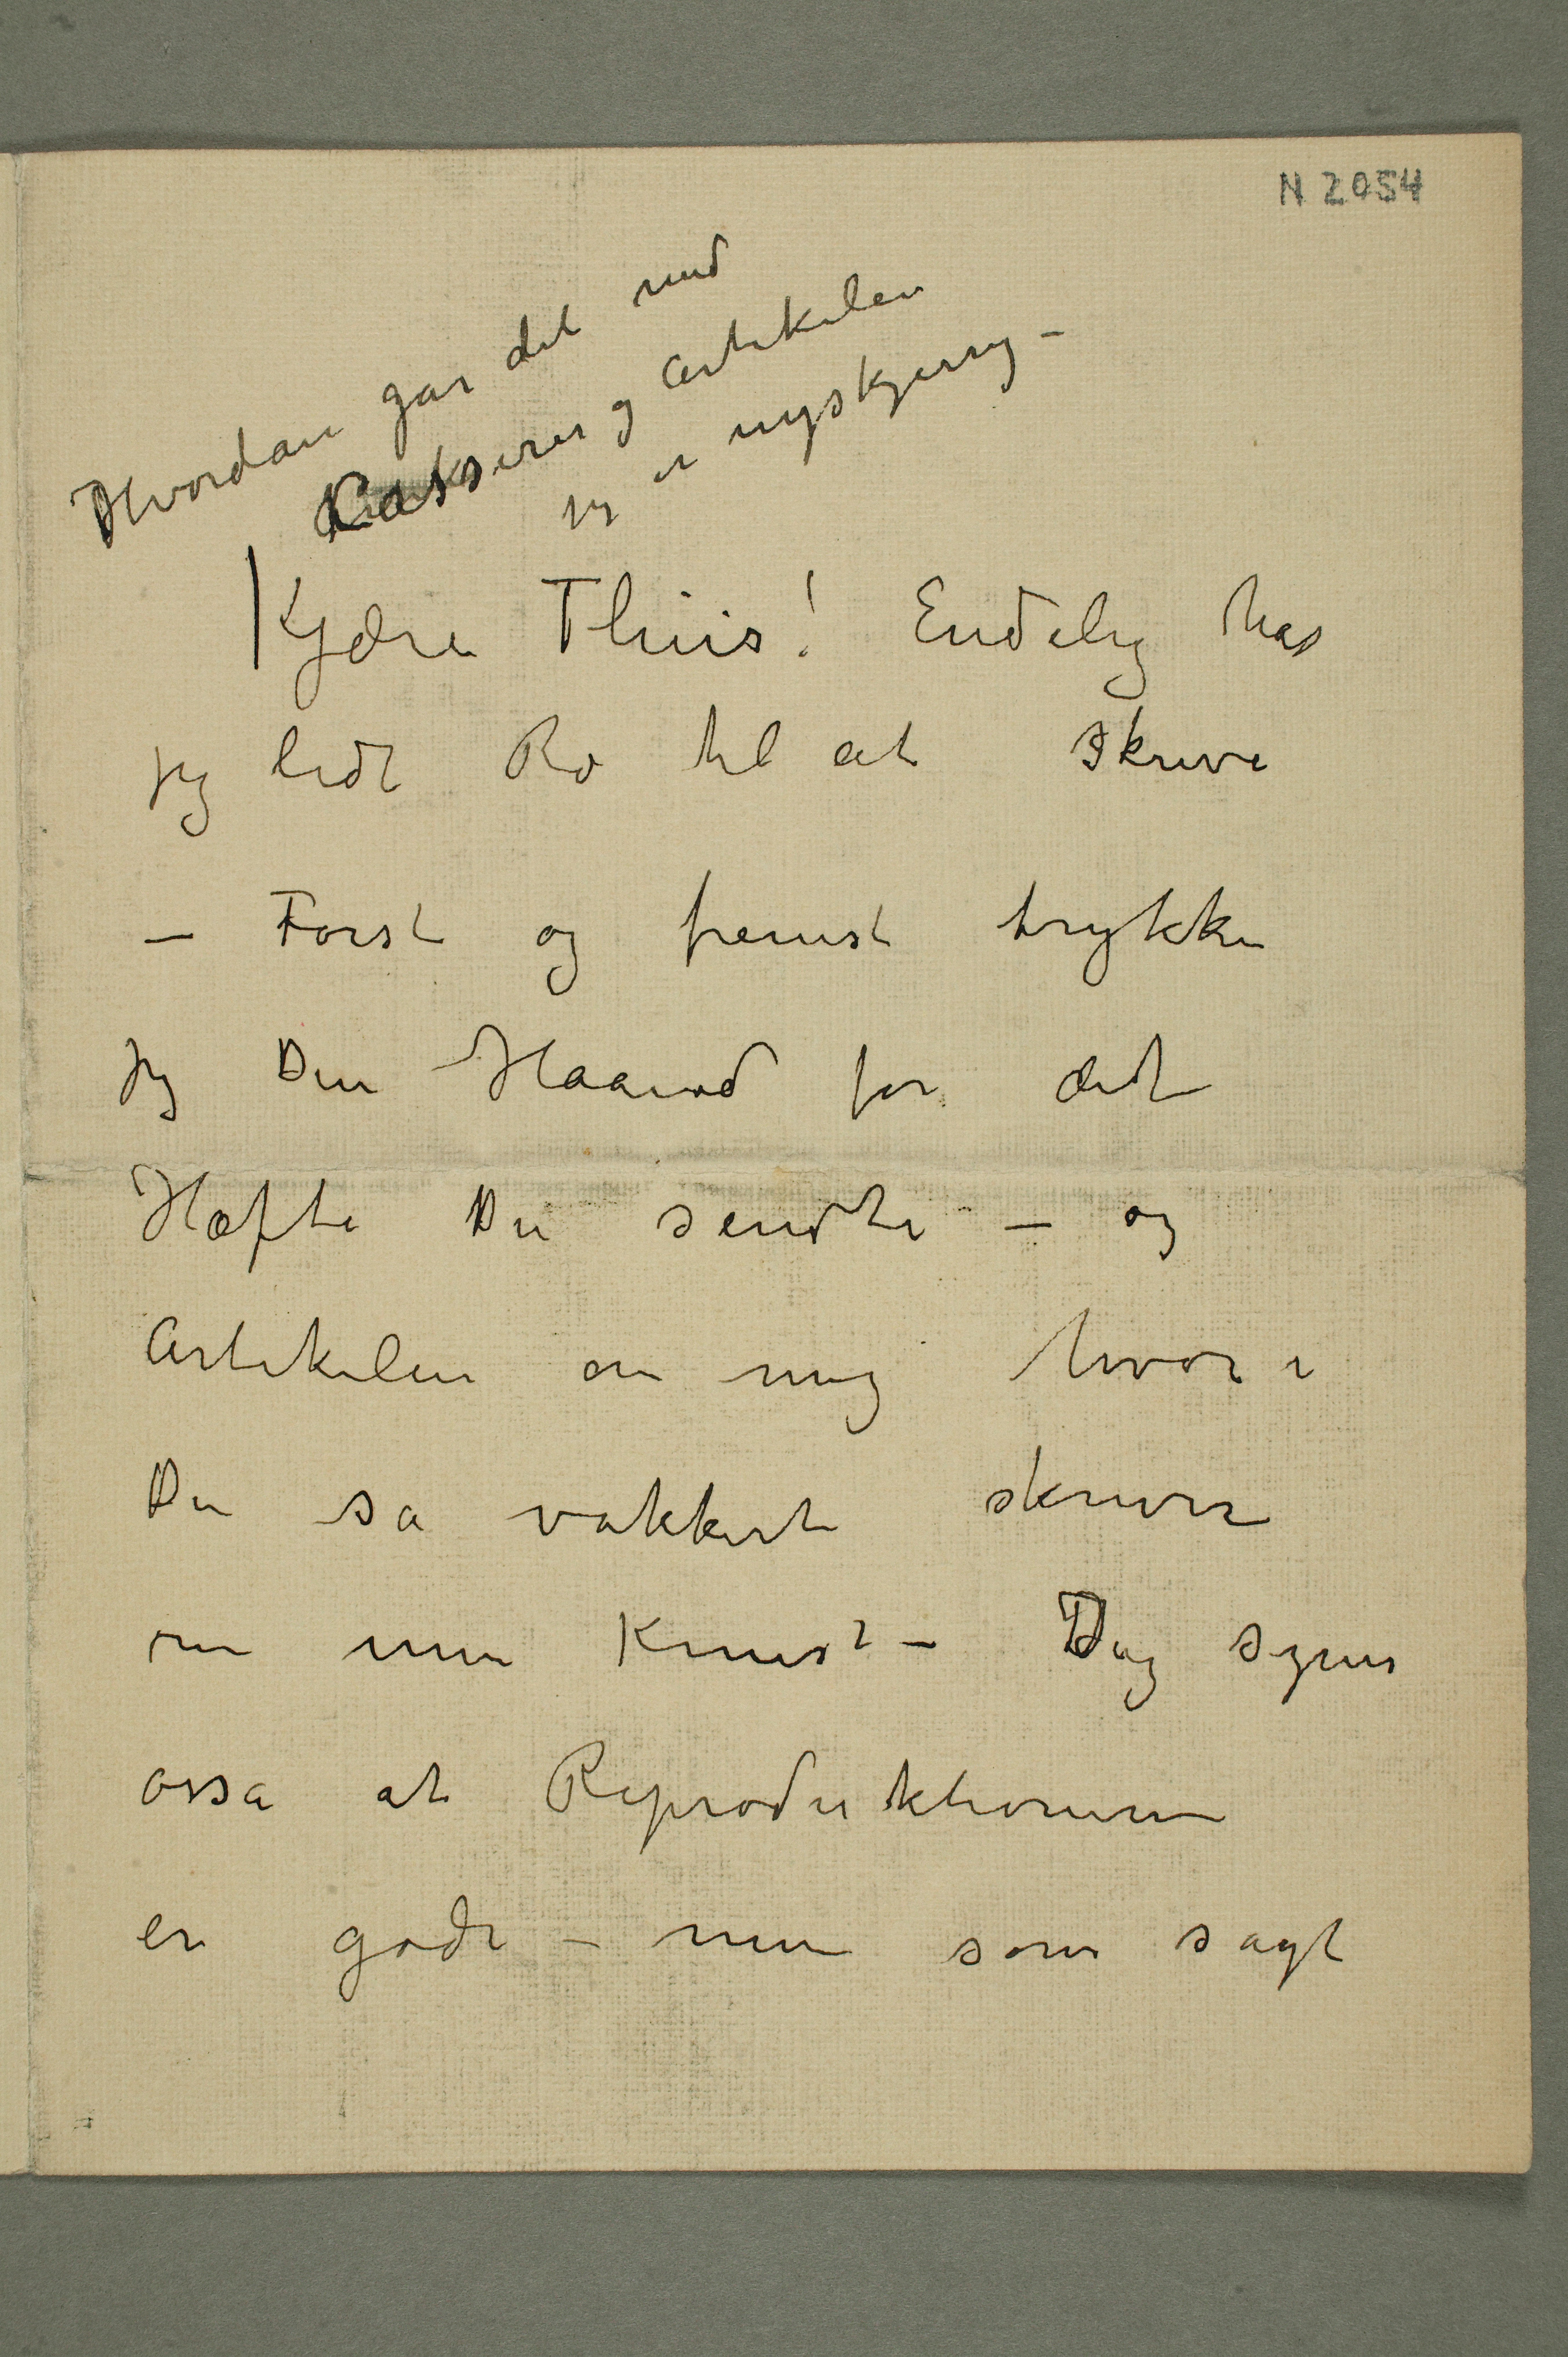 N 2054
Hvordan går det med
Cassirer og Artikelen
jeg er nyskjerrig –
Kjære Thiis! Endelig har
jeg lidt Ro til at skrive
– Først og fremst trykker
jeg Din Haand for det
Hæfte Du sendte – og
Artikelen om mig hvori
Du så vakkert skriver
om min Kunst – Jeg synes
osså at Reproduktionerne
er gode – men som sagt